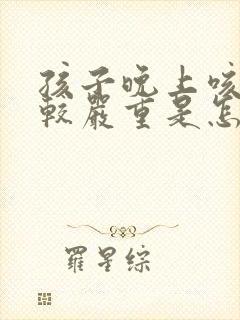 孩子晚上咳
較嚴重是怎
羅星綜